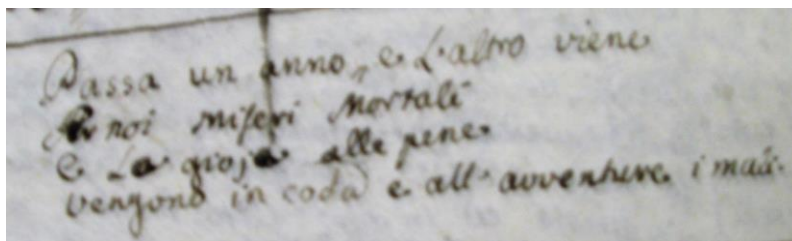 Passa un anno, e L'altro viene
Per noi Miseri Mortali
e La gioja alle pene
vengono in coda e all'avventure i mali.